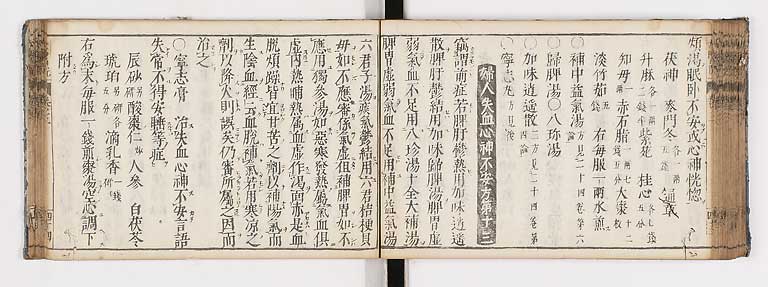 煩渇眠卧不安或心神恍惚
茯神 麥門冬 通艸
升麻 紫菀 桂心
知母 赤石脂 大棗 十二枚
淡竹茹 右毎服一兩水煎
○補中益氣湯 方見二十四卷第六
○歸脾湯○八珍湯
○加味逍遥散 三方見二十四卷第四論
○寧志丸 方見後
婦人失血心神不安方第十三
竊謂前症若脾肝鬱熱用加味逍遥
散脾肝鬱結用加味歸脾湯脾胃虚
弱氣血不足用八珍湯十全大補湯
脾胃虚弱氣血不足用補中益氣湯
六君子湯痰氣鬱結用六君桔梗貝
母如不應審係氣虚但補脾胃如不
應用獨參湯如惡寒發熱屬氣血俱
虚内熱晡熱屬血虚作渇面赤是血
脱煩躁皆宜甘苦之劑以補陽氣而
生陰血經云血脱補氣若用寒涼之
劑以降火則誤矣仍審所屬之因而
治之
○寧志膏 治失血心神不安言語
失常不得安睡等症
辰砂 酸棗仁 人參 白茯苓
琥珀 滴乳香
右爲末毎服一錢煎棗湯空心調下
附方